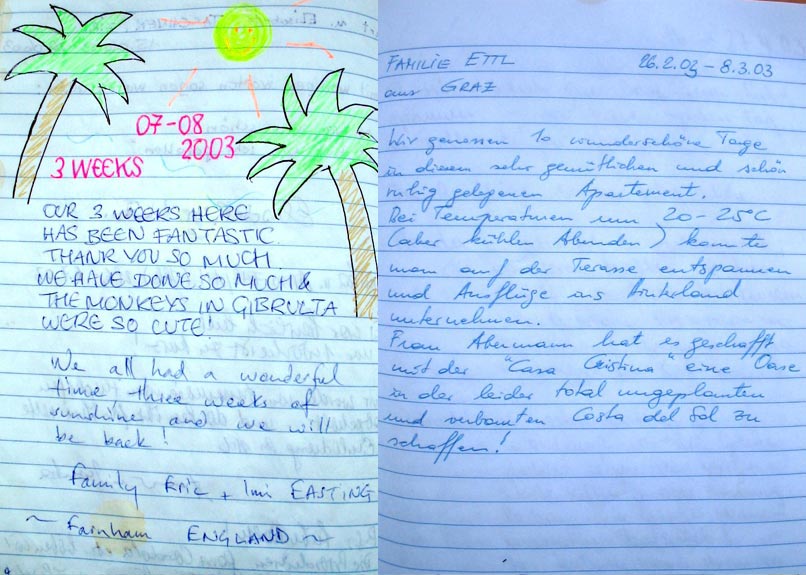 07-08
2003
3 WEEKS
OUR 3 WEEKS HERE
HAS BEEN FANTASTIC.
THANK YOU SO MUCH.
WE HAVE DONE SO MUCH &
THE MONKEYS IN GIBRULTA
WERE SO CUTE!
We all had a wonderful
time, three weeks of
sunshine and we will
be back!
Family Eric + Imi EASTING
~ Farnham ENGLAND ~
FAMILIE ETTL 26.2.03 - 8.3.03
aus GRAZ
Wir genossen 10 wunderschöne Tage
in diesem sehr gemütlichen und schön
ruhig gelegenen Apartement.
Bei Temperaturen um 20-25°C
(aber kühlen Abenden) konnte
man auf der Terasse entspannen
und Ausflüge ins Hinkoland
unternehmen.
Frau Abermann hat es geschafft
mit der "Casa Cristina" eine Oase
in der leider total ungeplanten
und verbauten Costa del Sol zu
schaffen!